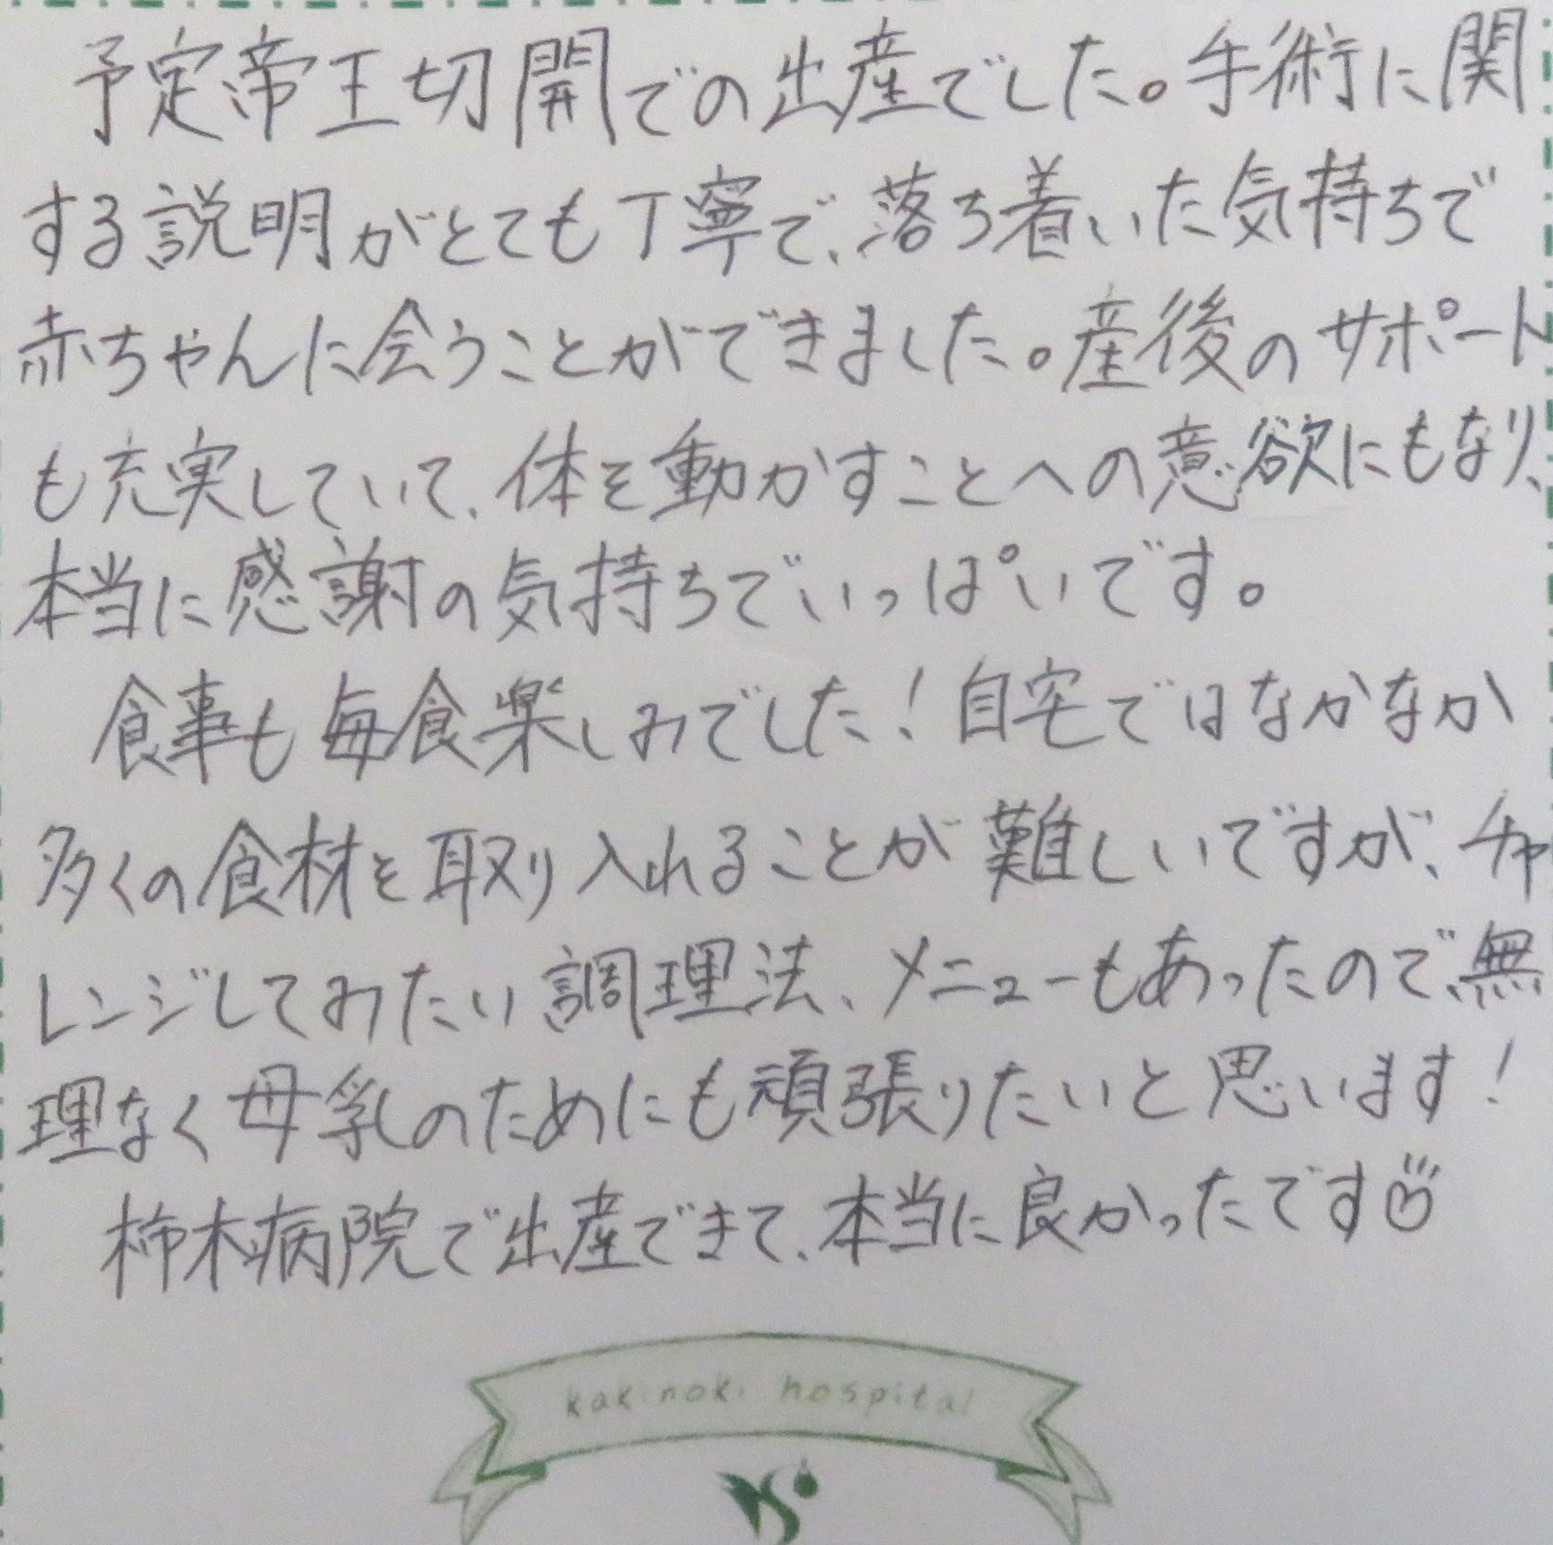 予定帝王切開での出産でした。手術に関
する説明がとても丁寧で、落ち着いた気持ちで
赤ちゃんに会うことができました。産後のサポート
も充実していて、体を動かすことへの意欲にもなり、
本当に感謝の気持ちでいっぱいです。
食事も毎食楽しみでした！自宅ではなかなか
多くの食材を取り入れることが難しいですが、チャ
レンジしてみたい調理法、メニューもあったので、無
理なく母乳のためにも頑張りたいと思います！
柿木病院で出産できて、本当に良かったです
kakinoki hospital